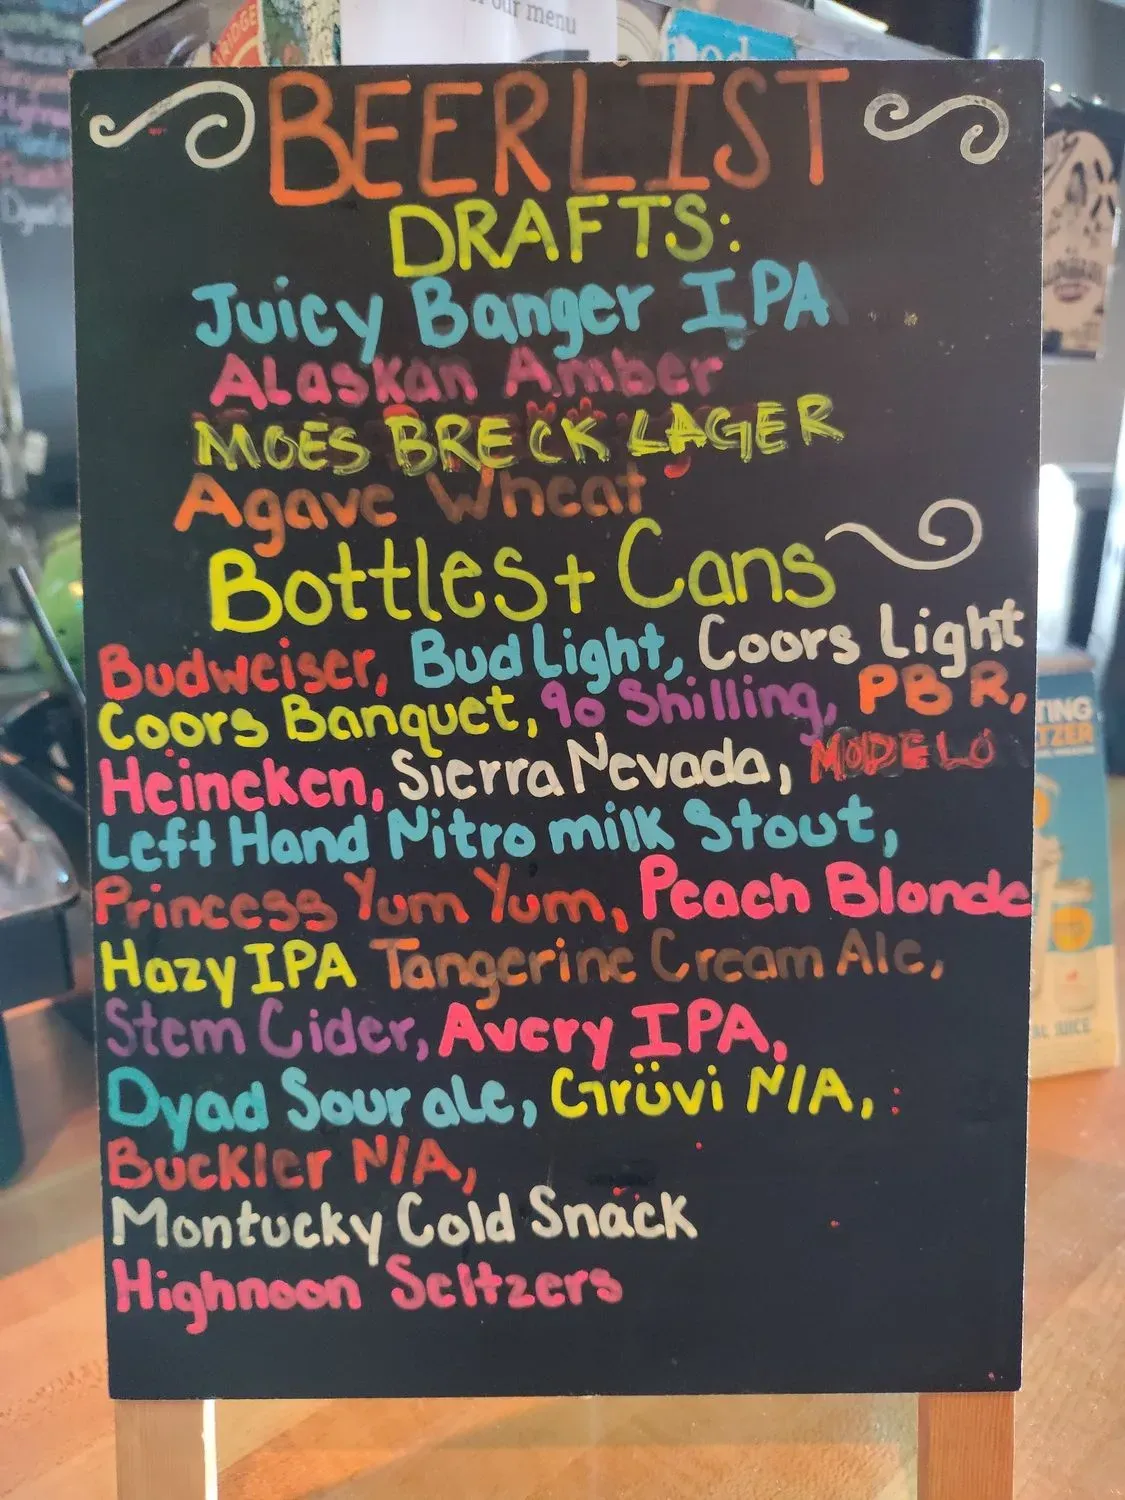 our menu
BEERLIST
DRAFTS:
Juicy Banger IPA
Alaskan Amber
MOES BRECK LAGER
Agave Wheat
Bottles + Cans
Budweiser, Bud Light, Coors Light
Coors Banquet, 90 Shilling, PBR,
Heineken, Sierra Nevada, MODELO
Left Hand Nitro milk Stout,
Princess Yum Yum, Peach Blonde
Hazy IPA Tangerine Cream Ale,
Stem Cider, Avery IPA,
Dyad Sour ale, Grüvi N/A,
Buckler N/A,
Montucky Cold Snack
Highnoon Seltzers
JUICE